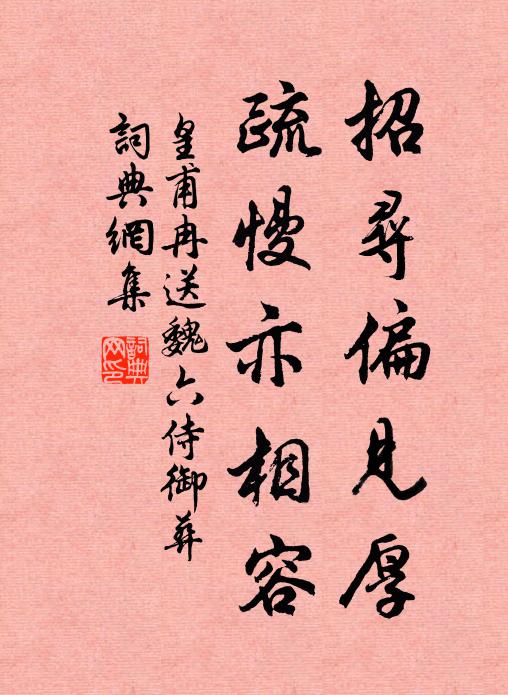 招尋偏見厚
疏慢亦相容
皇甫冉送魏六侍御葬
詞典網集
詞典
网印